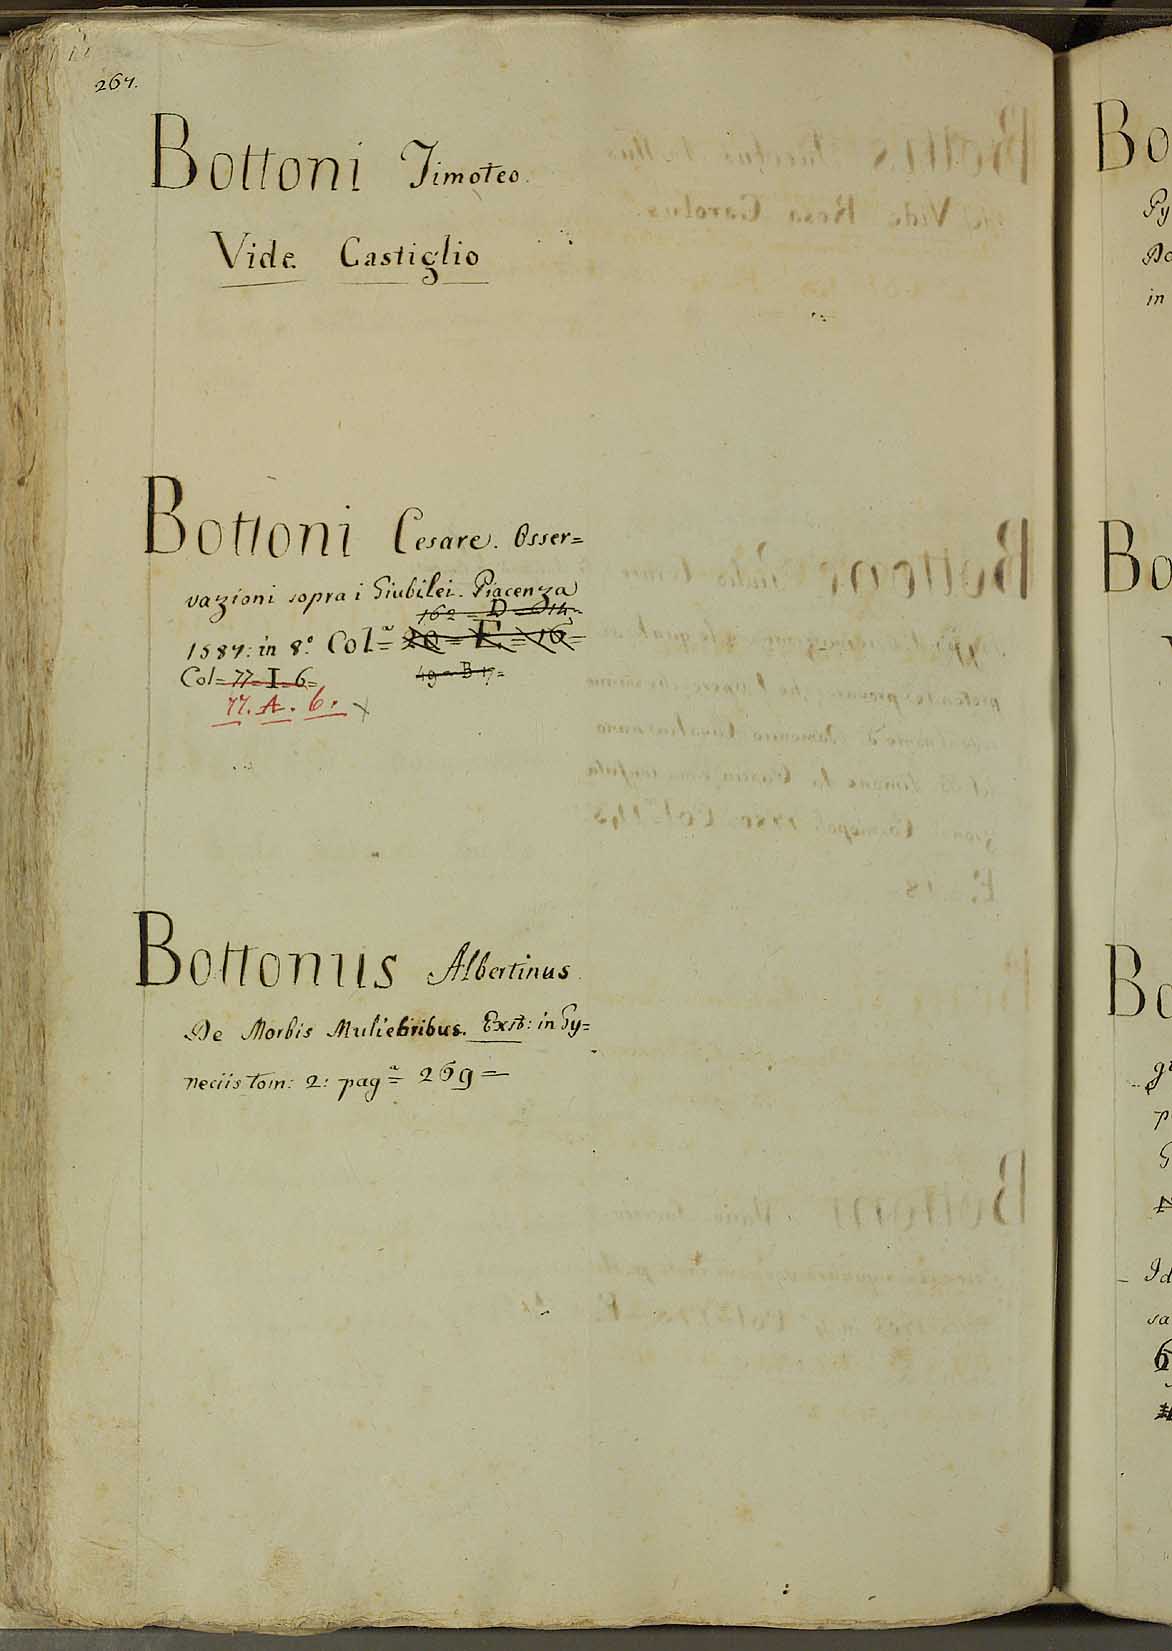 267.
Bottoni Timoteo.
Vide Castiglio
Bottoni Cesare. Osser=
vazioni sopra i Giubilei. Piacenza
162 = D = 14=
1587: in 8.° Col=ª 20 = E. = 16=
Col= 77= I. 6= 49= B 17=
77. A. 6. x
Bottonus Albertinus.
De Morbis Muliebribus. Exst: in Gy=
neciis tom: 2: pag=ª 269=
Bo
Py
De
in
Bo
Bo
p
Id
sa